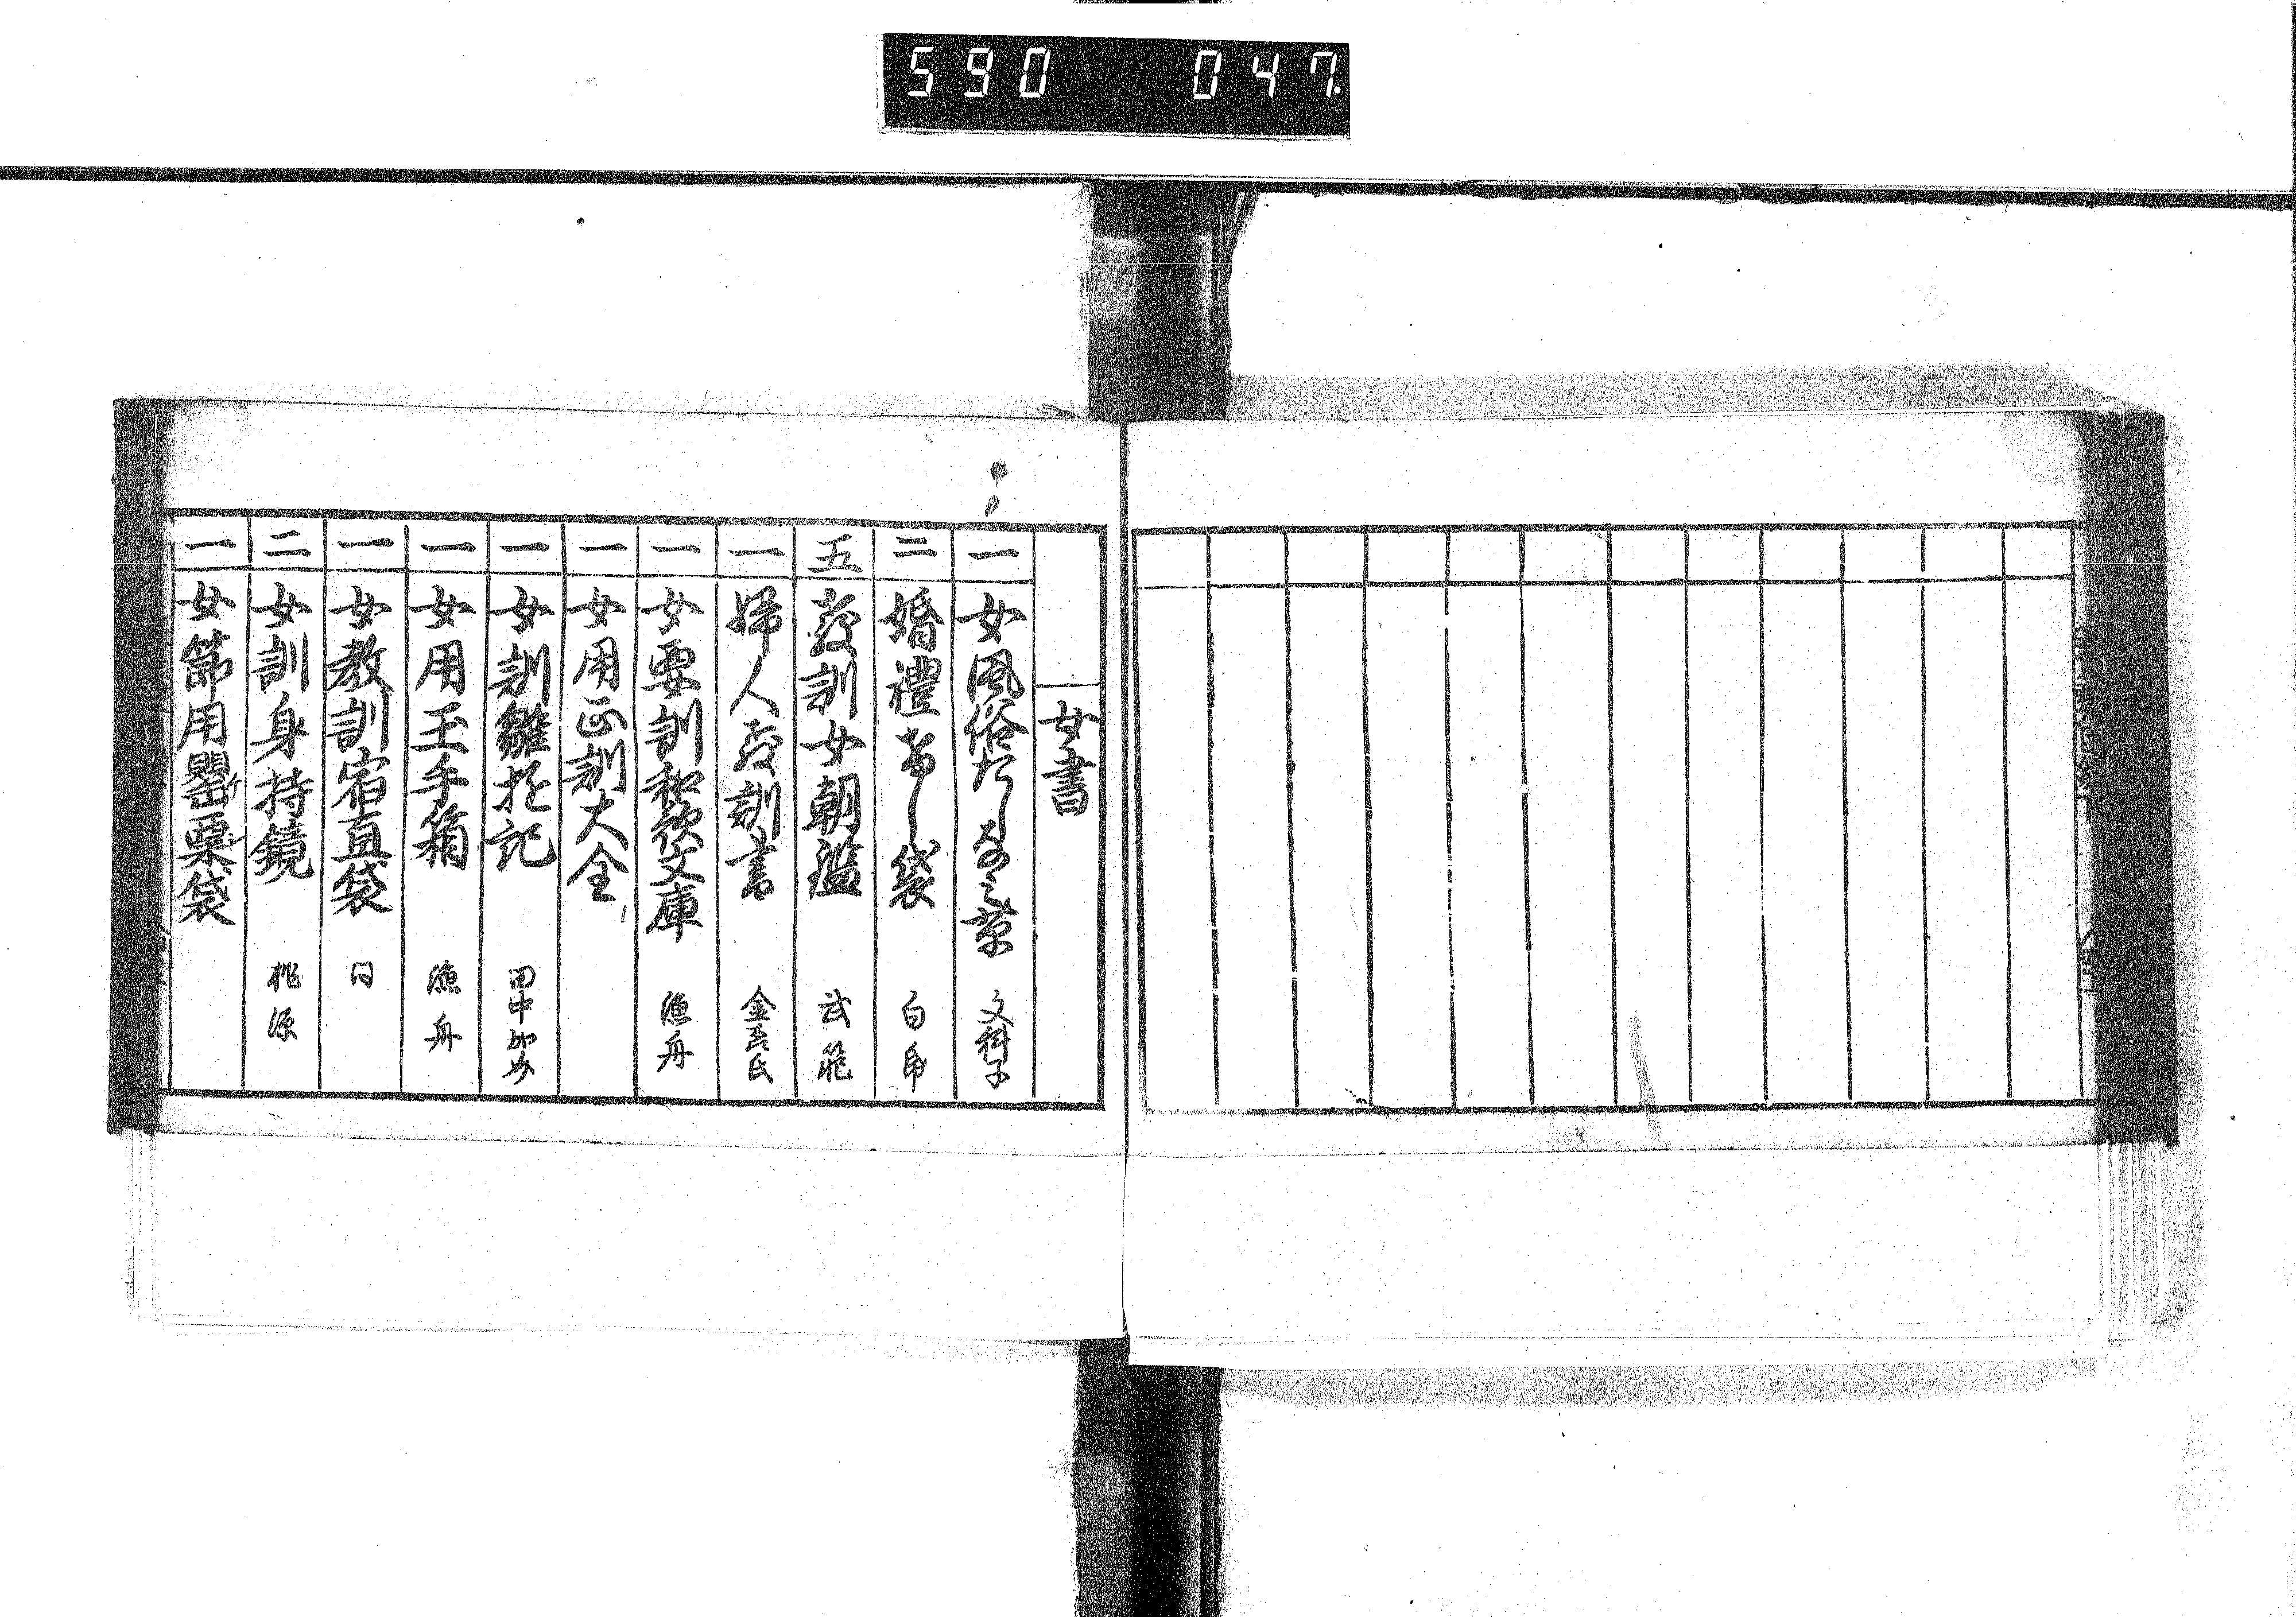 590 047
女書
一 女風俗たしなみ草 文科子
二 婚禮 袋 白帋
五 教訓女朝鑑
一 婦人教訓書 金吾氏
一 女要訓和歌文庫 漁舟
一 女用正訓大全
一 女訓雛形記 田中
一 女用玉手箱 漁舟
一 女教訓宿直袋 同
二 女訓身持鏡 桃源
一 女節用罌粟袋